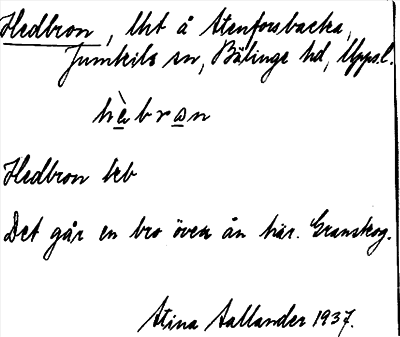 Hedbron, lht å Stenforsbacka,
Jumkils sn, Bälinge hd, Upps. l.
hè̱bra̱n
Hedbron beb
Det går en bro över ån här. Granskog.
Stina Aallander 1937.